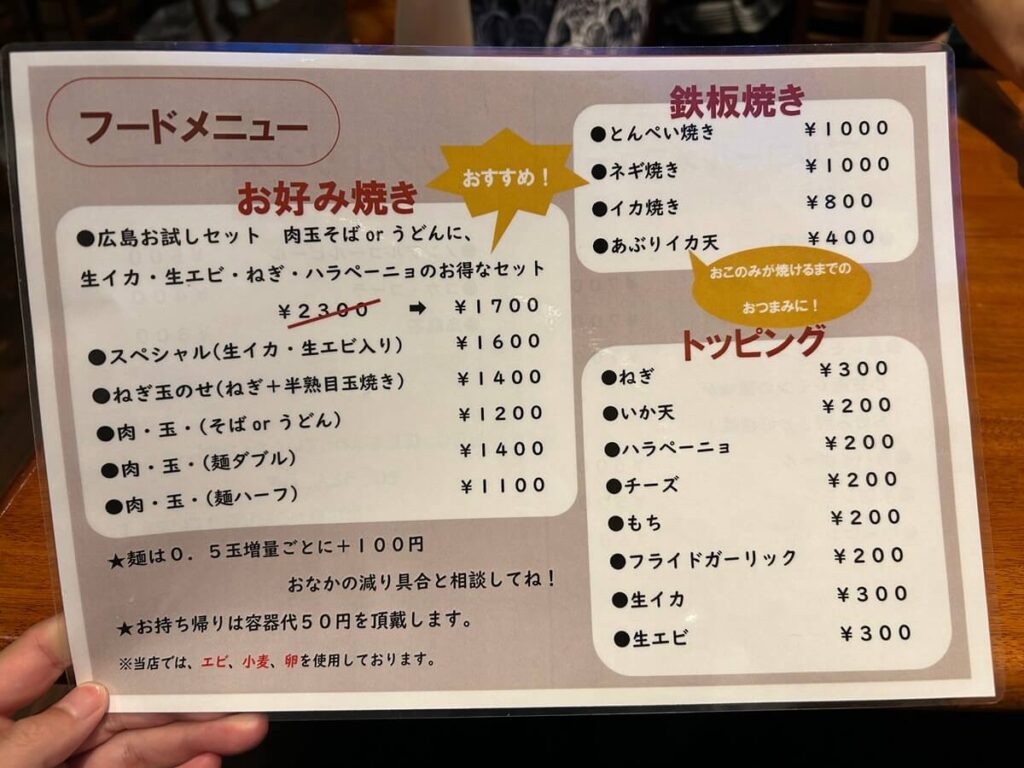 フードメニュー
おすすめ！
お好み焼き
●広島お試しセット　肉玉そばorうどんに、
生イカ・生エビ・ねぎ・ハラペーニョのお得なセット
￥２３００ ➡ ￥１７００
●スペシャル(生イカ・生エビ入り) ￥１６００
●ねぎ玉のせ(ねぎ＋半熟目玉焼き) ￥１４００
●肉・玉・(そばorうどん) ￥１２００
●肉・玉・(麺ダブル) ￥１４００
●肉・玉・(麺ハーフ) ￥１１００
★麺は０．５玉増量ごとに＋１００円
おなかの減り具合と相談してね！
★お持ち帰りは容器代５０円を頂戴します。
※当店では、エビ、小麦、卵を使用しております。
鉄板焼き
●とんぺい焼き ￥１０００
●ネギ焼き ￥１０００
●イカ焼き ￥８００
●あぶりイカ天 ￥４００
おこのみが焼けるまでの
おつまみに！
トッピング
●ねぎ ￥３００
●いか天 ￥２００
●ハラペーニョ ￥２００
●チーズ ￥２００
●もち ￥２００
●フライドガーリック ￥２００
●生イカ ￥３００
●生エビ ￥３００